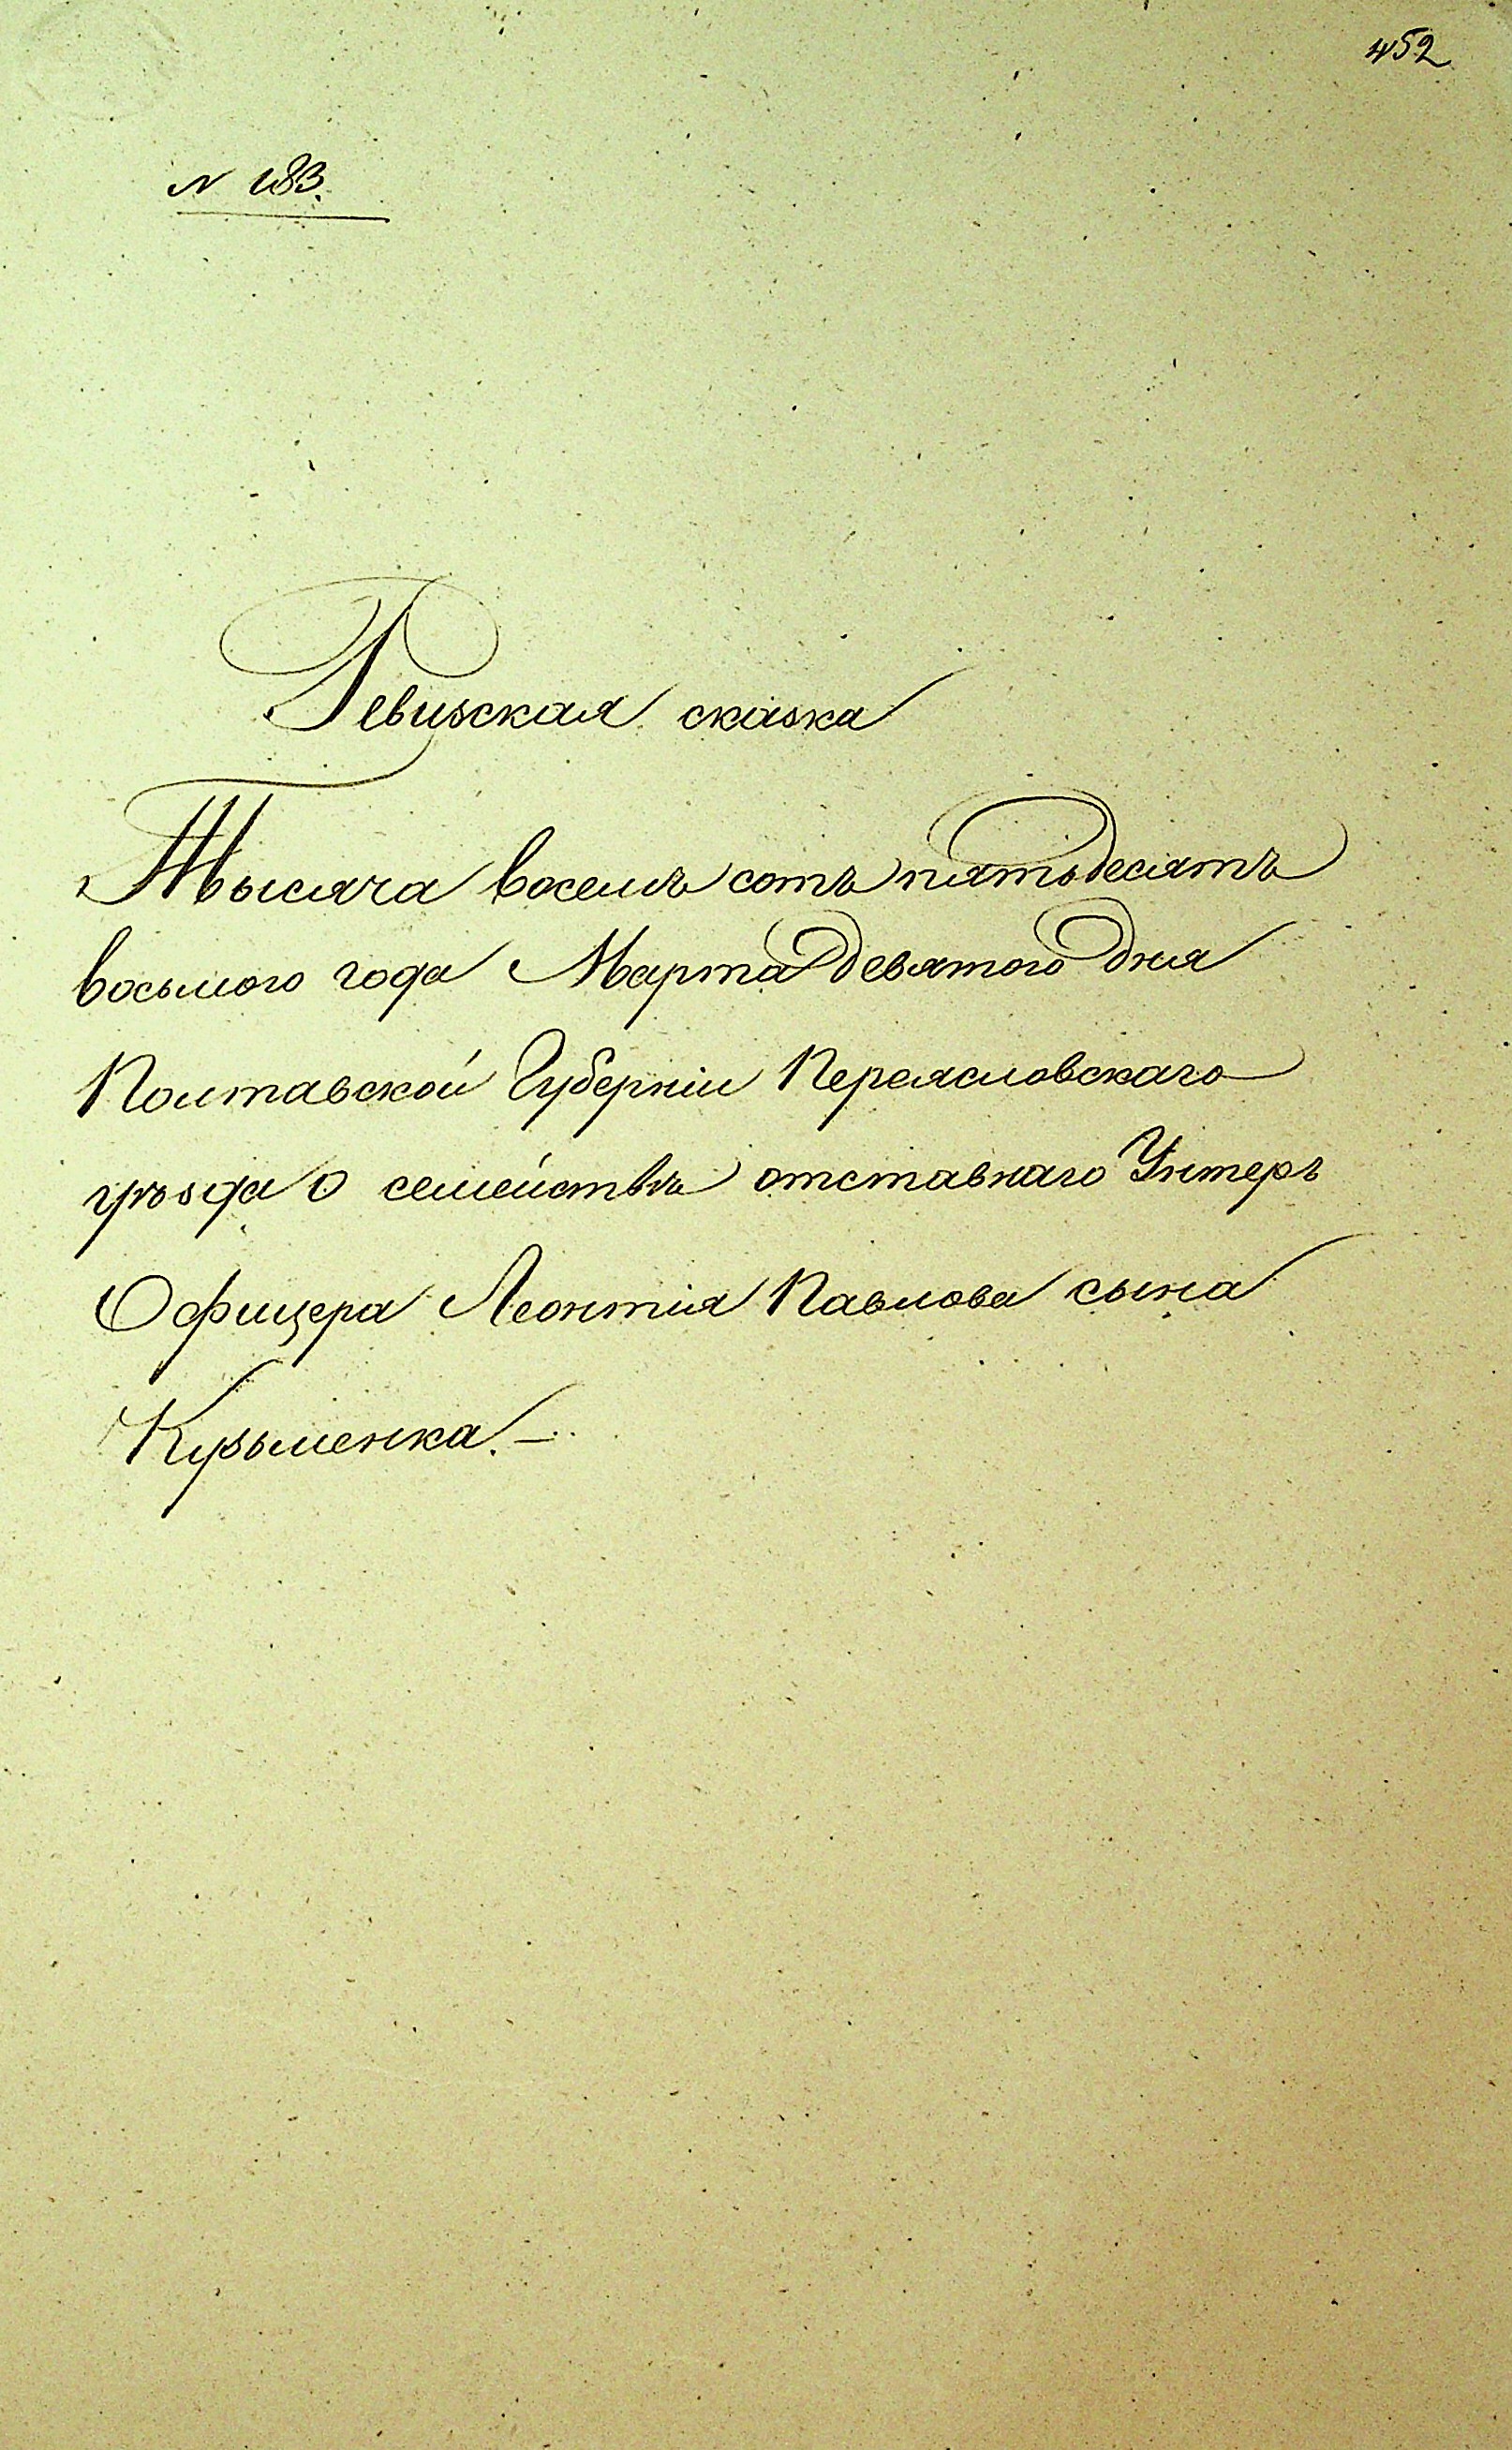 452
N 183.
Ревизская сказка
Тысяча восемъ сотъ пятьдесятъ
восьмого года Марта девятого дня
Полтавской Губерніи Переясловскаго
уѣзда о семействѣ отставнаго Унтеръ
Офицера Леонтія Павлова сына
Кузьменка. –